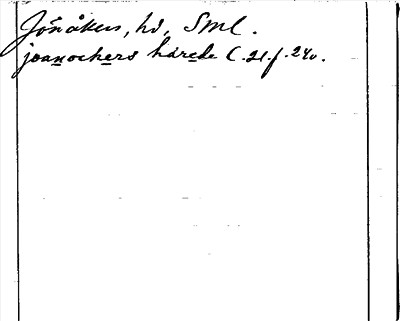 Jönåkers, hd, Sml.
joanockers härede C. 21. f. 24v.